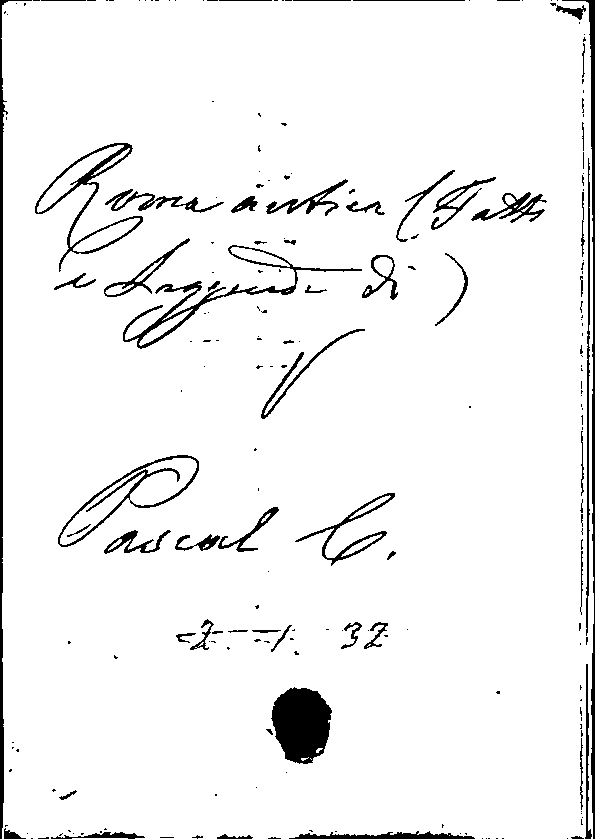 Roma antica (Fatti
e Leggende di)
V
Pascal C.
2 - 1. 32